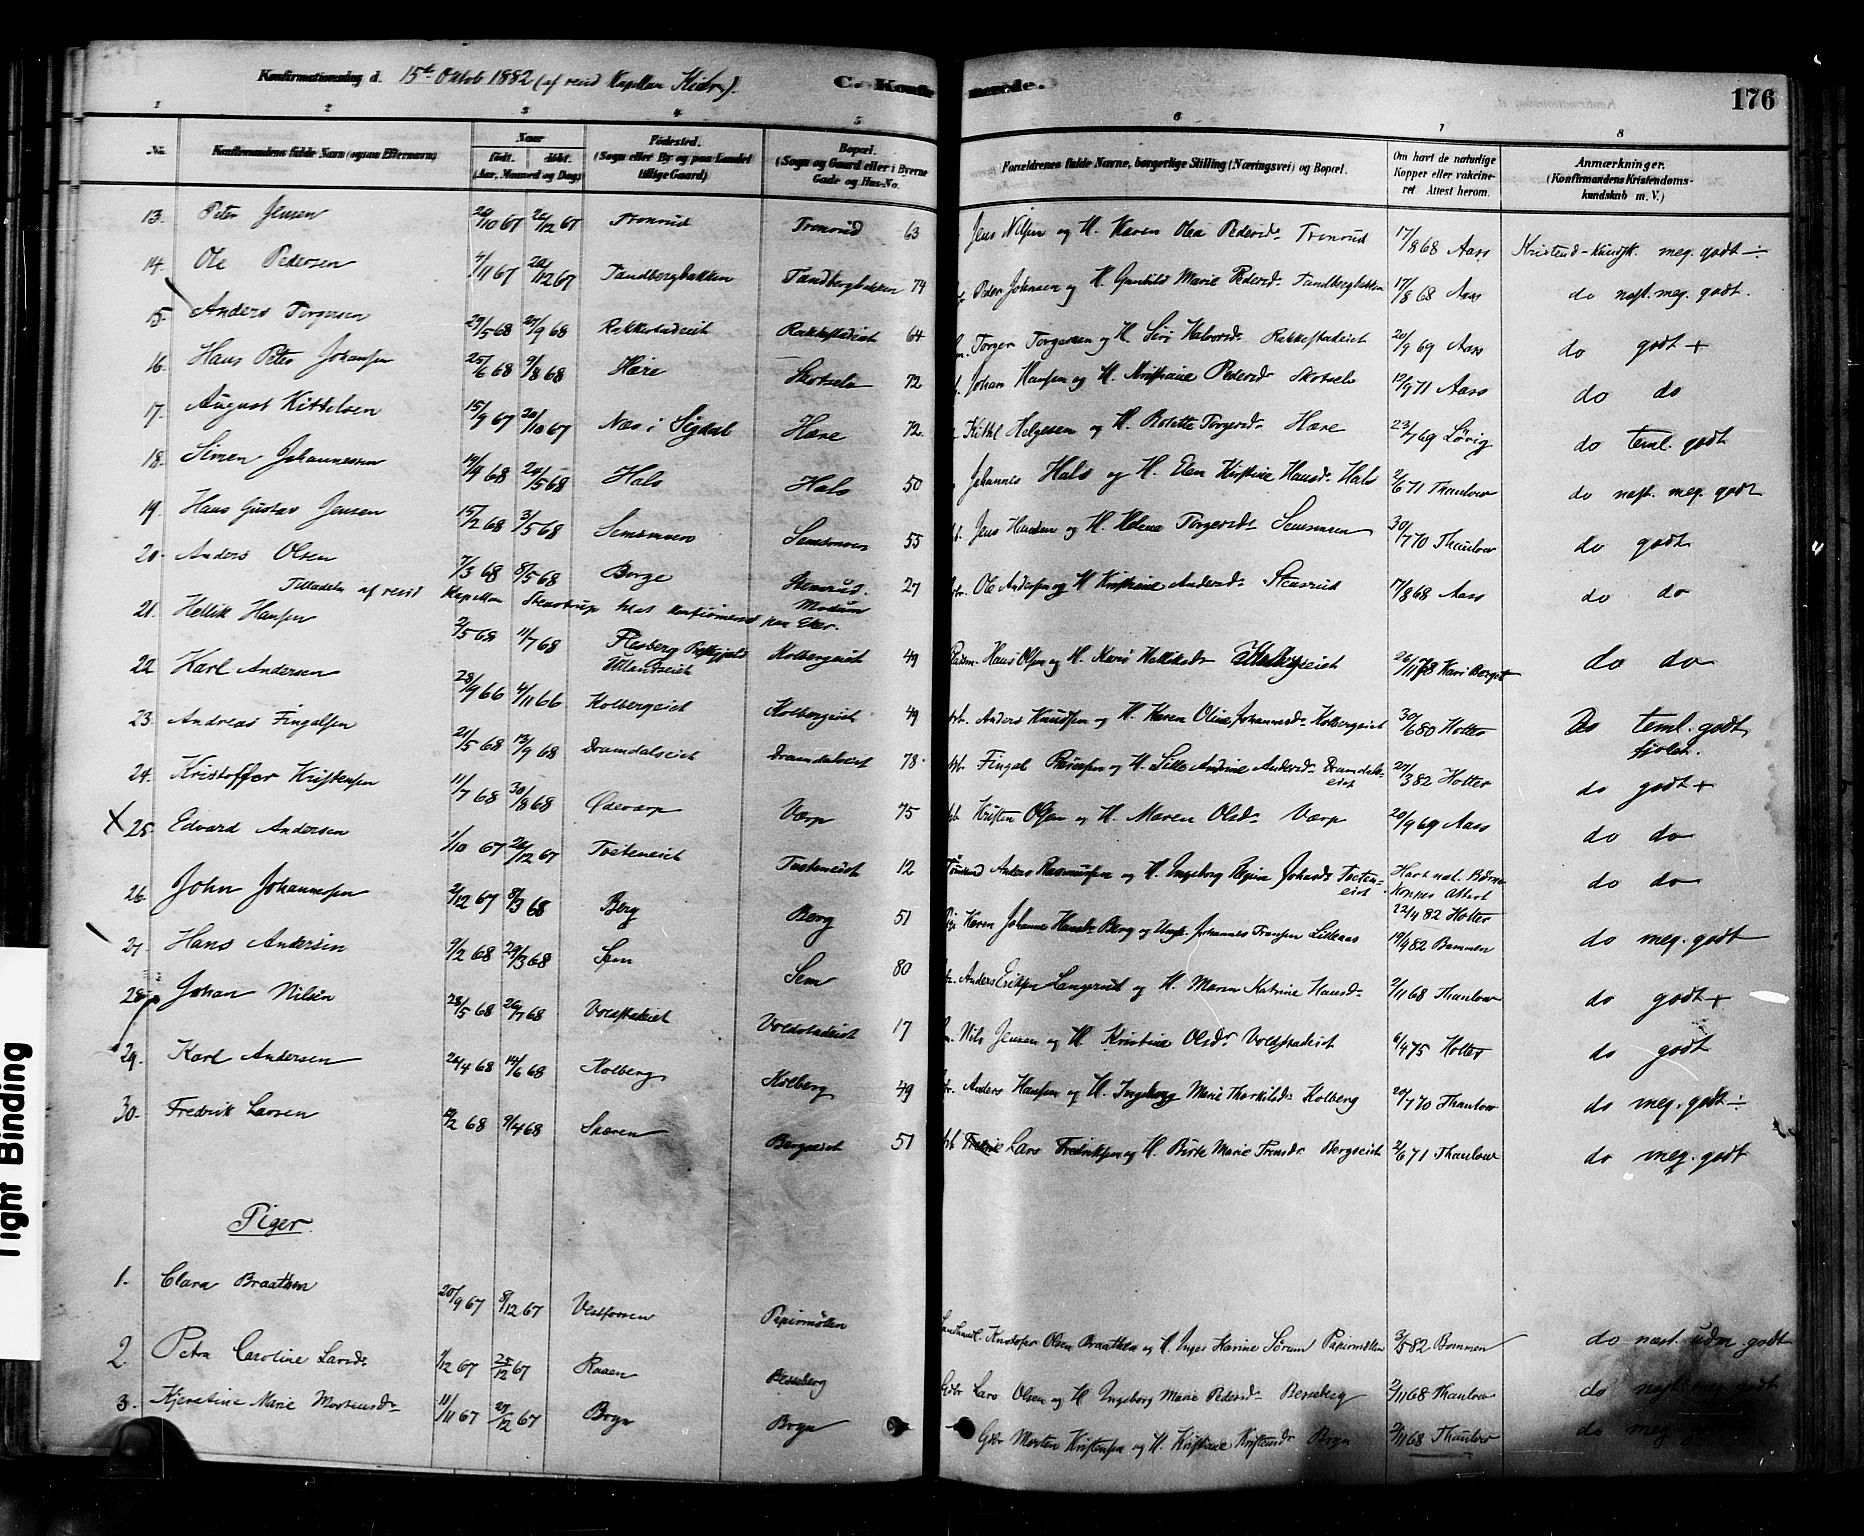 Konfirmationsdag d. 15de Oktob 1882 (af resid Kapellan Kiær).
C. Konfirmerede.
176
1 2 3 4 5 6 7 8
No. Konfirmandens fulde Navn (ogsaa Efternavn) Naar født, døbt. (Aar, Maaned og Dag) Fødested. (Sogn eller By og paa Landet tillige Gaard) Bopæl. (Sogn og Gaard eller i Byerne Gade og Hus-No. Forældrenes fulde Navne, borgerlige Stilling (Næringsvei) og Bopæl. Om havt de naturlige Kopper eller vakcineret Attest herom. Anmærkninger. (Konfirmandens Kristendomskundskab m. V.)
13. Peter Jensen 26/12 67 Tronrud Tronrud 63 Jens Nilsen og H. Karen Olea Pedersd. Tronrud 17/8 68 Aass Kristend-kundsk. meg. godt ÷
14. Ole Pedersen Tandbergbakken Tandbergbakken 74 Peder Johnsen og H. Gunhild Marie Pedersd. Tandbergbakken 17/8 68 Aass do næst. meg. godt.
15. Anders Torgersen 29/5 68 27/9 68 Rakkestadeiet Rakkestadeiet 64 Torger Torgersen og H. Siri Halvorsd. Rakkestadeiet 20/9 69 Aass do godt +
16. Hans Peter Johansen 25/6 68 9/8 68 Hære Skotselv 72 Johan Hansen og H. Kristiane Pedersd. Skotselv 12/9 71 Aass do do
17. August Kittelsen 15/9 67 20/10 67 Næs i Sigdal Hære 72. Kittel Helgesen og H. Torgersd. Hære 23/7 69 Løvig do teml. godt
18. Simen Johannessen 14/4 68 24/5 68 Hals Hals 50 Johannes Hals og H. Elen Kirstine Hansd. Hals 2/6 71 Thaulow do næst. meg. godt
19. Hans Gustav Jensen 15/2 68 3/5 68 Semsmoen Semsmoen 55 Jens Hansen og H. Helene Torgersd. Semsmoen 30/7 70 Thaulow do godt
20. Anders Olsen 7/3 68 8/5 68 Borge Stensrud. Modum 27 Ole Andersen og H Kristiane Andersd. Stensrud 17/8 68 Aass do do
Tilladelse af resid Kapellan Steenstrup til at konfirmeres paa Eker.
21. Hellik Hansen 2/5 68 11/7 68 Flesberg Præstegjeld Kolbergeiet 49 Hans Olsen og H. Kari Helliksd. 26/11 78 Kari Berget do do
22 Karl Andersen 28/9 66 4/11 66 Kolbergeiet Kolbergeiet 49 Anders Knudsen og H. Karen Oline Johannesd. Kolbergeiet 30/6 80 Hotter Do teml. godt
23. Andreas Fingalsen 21/5 68 13/9 68 Dramdalseiet Dramdalseiet 78. Fingal og H. Andrine Andersd. Dramdalseiet 27/3 82 Hotter do godt +
24. Kristoffer Kristensen 11/7 68 30/8 68 Ødeværp Værp 75 Kristen Olsen og H. Maren Olsd. Værp 20/9 69 Aass do do
25. Edvard Andersen 1/10 67 26/12 67 Toeteneiet Toeteneiet 12 Anders Rasmussen og H. Ingeborg Regine Johansd. Toeteneiet Havt nat. Børnekopper attest 22/4 82 Hotter do do
26. John Johannesen 2/12 67 8/3 68 Berg Berg 51 Pige Karen Johanne Hansd. Berg og Ungk. Johannes Fransen Lilleaas 19/4 82 Bommen do meg. godt
27. Hans Andersen 9/2 68 29/3 68 Sem Sem 80 Anders Eriksen Langerud og H. Maren Katrine Hansd. 2/11 68 Thaulow do godt +
28. Johan Nilsen 28/5 68 26/7 68 Voldstadeiet Voldstadeiet 17 Nils Jensen og H. Kristine Olsd. Voldstadeiet 6/4 75 Hotter do godt
29. Karl Andersen 26/4 68 14/6 68 Kolberg Kolberg 49 Anders Hansen og H. Ingeborg Marie Thorkilsd. Kolberg 20/7 70 Thaulow do meg. godt ÷
30. Fredrik Larsen 68 9/4 68 Skaren Bergseiet 51 Lars Fredriksen og H. Birte Marie Bergseiet 2/6 71 Thaulow do meg. godt
Piger.
1. Clara Braathen 20/9 67 8/12 67 Vestfossen Papirmøllen Kristofer Olsen Braathen og H. Inger Karine Sørum Papirmøllen 3/5 82 Bommen do næst. uden godt
2. Petra Caroline Larsd. 1/12 67 25/12 67 Raaen Besseberg Lars Olsen og H Ingeborg Marie Pedersd. Besseberg 2/11 68 Thaulow do næst. meg. godt
3. Kjerstine Marie Mortensd. 11/11 67 27/12 67 Bogn Bogn Gbr Morten Kristensen og H. Kristiane Kristensd. Bogn 2/11 68 Thaulow do meg
Tight Binding